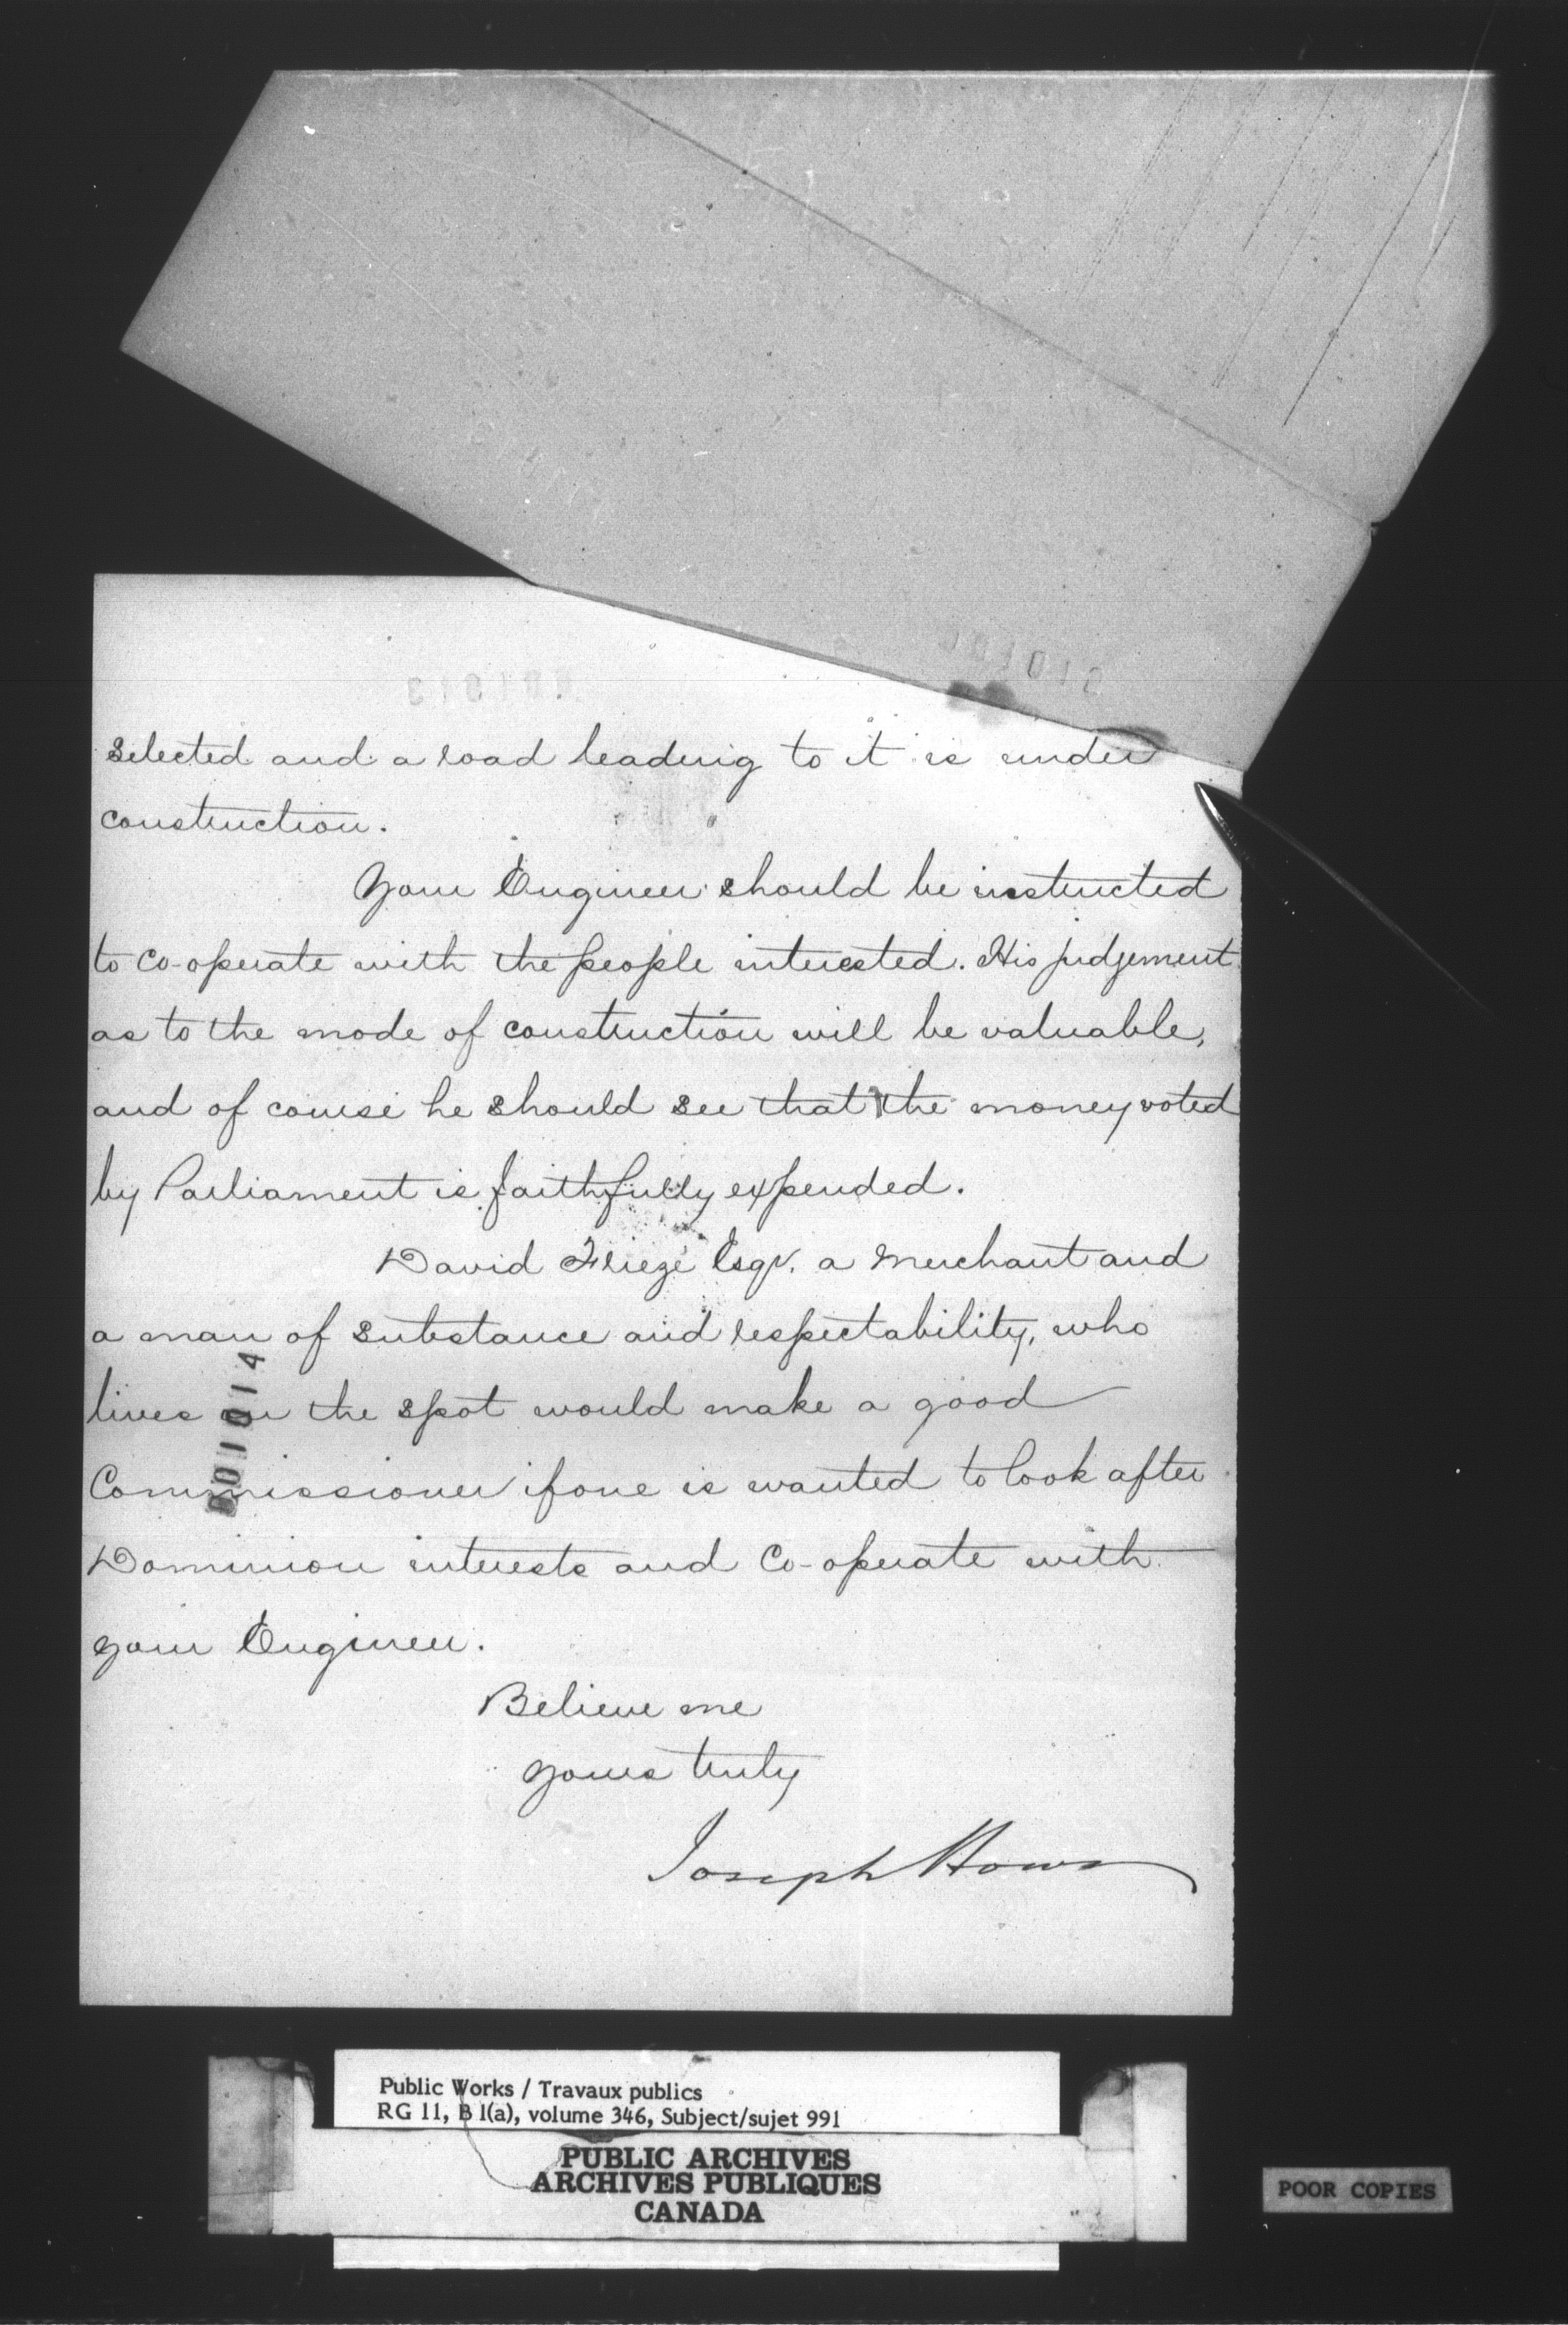 selected and a road leading to it is under
construction.
Your Engineer should be instructed
to co-operate with the people interested. His judgement
as to the mode of construction will be valuable,
and of course he should see that the money voted
by Parliament is faithfully expended.
David Frieze Esqr. a Merchant and
a man of substance and respectability, who
lives on the spot would make a good
Commissioner if one is wanted to look after
Dominion interests and Co-operate with
your Engineer.
Believe me
yours truly
Joseph Howe
001014
Public Works / Travaux publics
RG 11, B 1(a), volume 346, Subject/sujet 991
PUBLIC ARCHIVES
ARCHIVES PUBLIQUES
CANADA
POOR COPIES